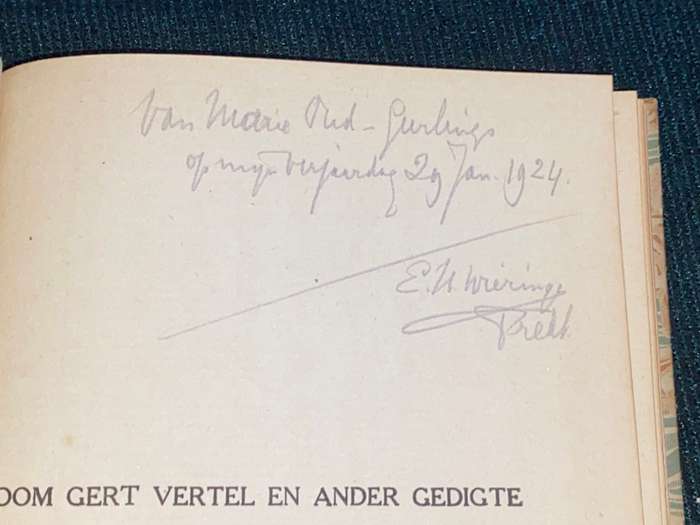 Van Marie Oud-Gerlings
op mijn Verjaardag 29 Jan. 1924.
E. H. Wieringa
Predt.
OOM GERT VERTEL EN ANDER GEDIGTE